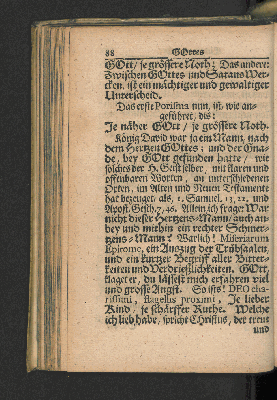 88 GOttes
GOtt/ je grössere Noth; Das andere:
Zwischen GOttes und Satans Wer-
cken, ist ein mächtiger und gewaltiger
Unterscheid.
Das erst Porisma nun, ist, wie an-
geführet, dis:
Je näher GOtt/ je grössere Noth.
König David war ja ein Mann, nach
dem Hertzen GOttes; und der Gna-
de, bey GOtt gefunden hatte/ wie
solches der H. Geist selber, mit klaren und
offenbaren Worten, an unterschiedenen
Orten, im Alten und Neuen Testamente
hat bezeuget, als, 1. Samuel. 13, 22, und
Apost. Gesch. 7, 46. Allein ich frage: War
nicht dieser Hertzens-Mann/ auch an-
bey und mithin ein rechter Schmer-
tzens-Mann? Warlich! Miseriarum
Epitome, ein Auszug der Trübsaalen,
und ein kurtzer Begriff aller Bitter-
keiten und Verdrießlichkeiten. GOtt,
klaget er, du lässest mich erfahren viel
und grosse Angst. So ists! DEO cha-
rissimi, flagellis proximi, Je lieber
Kind/ je schärffer Ruthe. Welche
ich lieb habe, spricht Christus, der treue
und